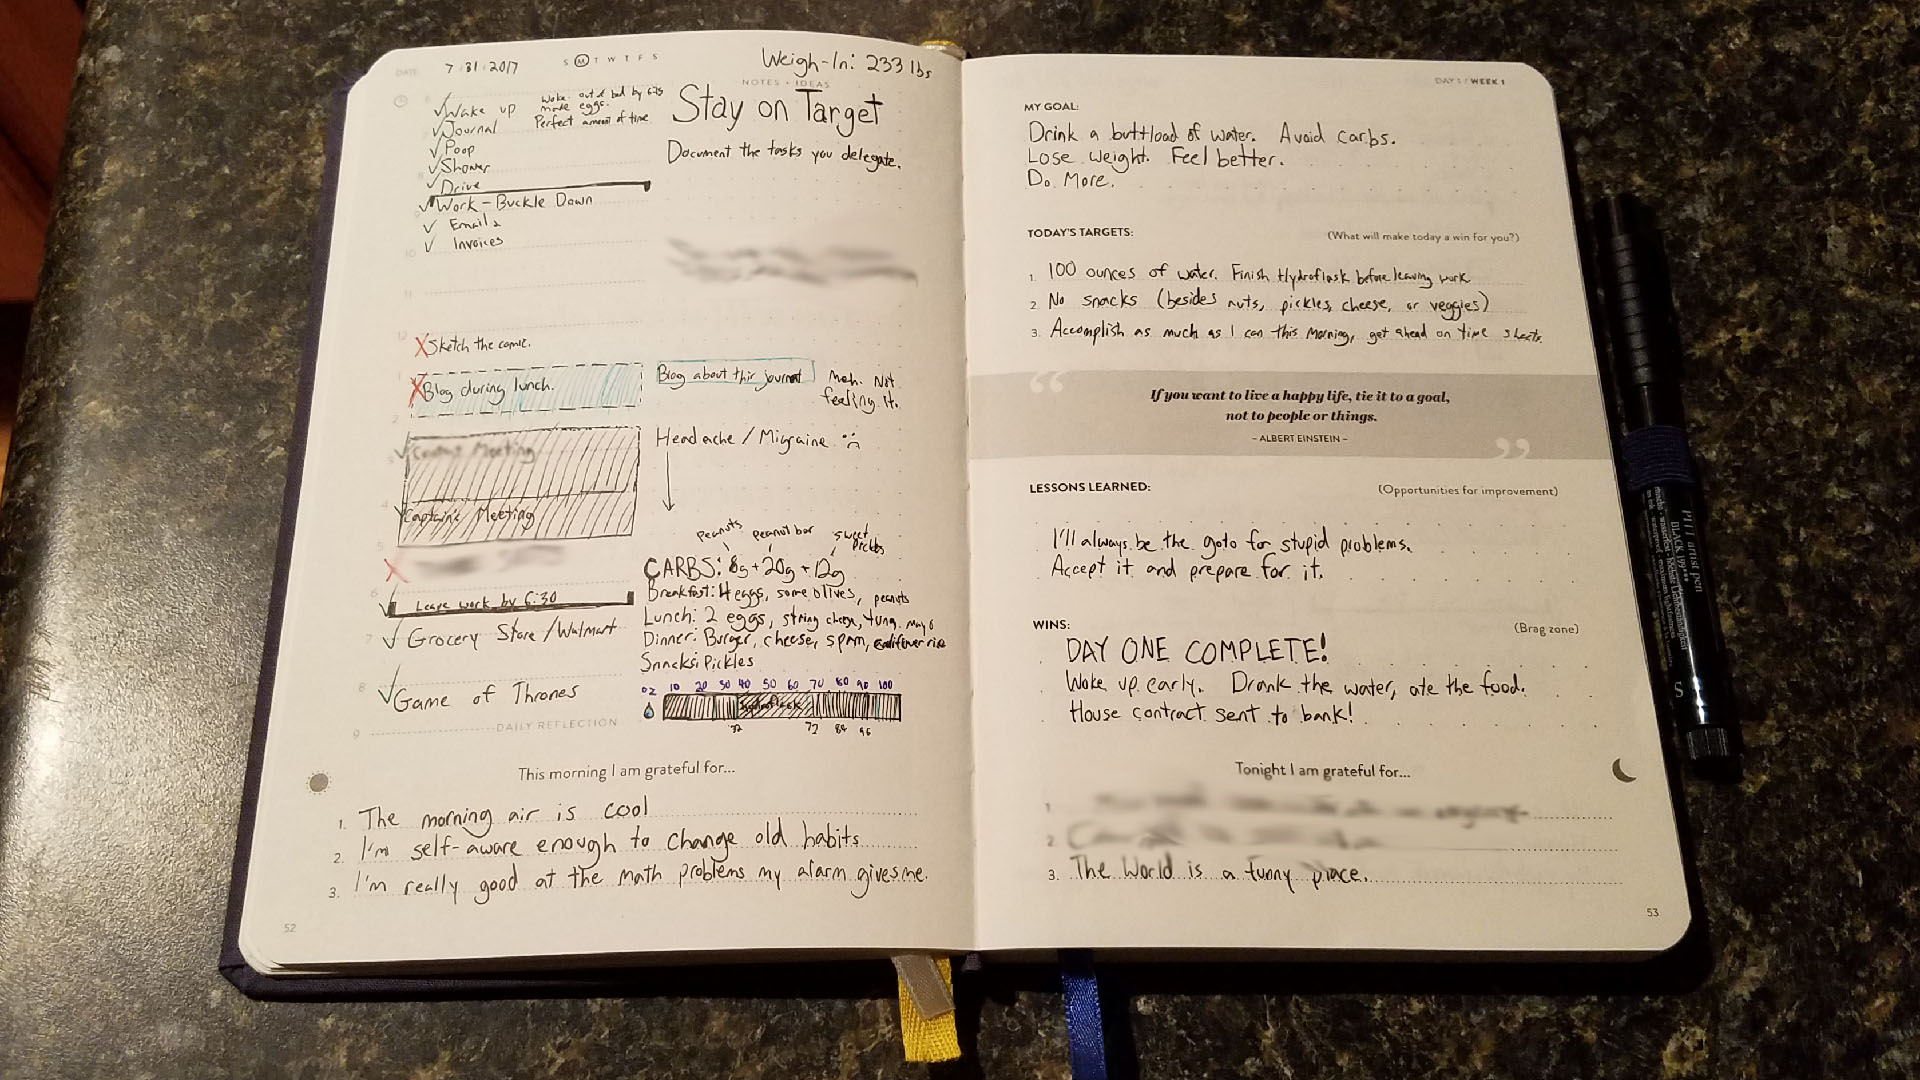 DATE: 7 31 2017
S M T W T F S
Weigh-In: 233 lbs
NOTES + IDEAS
Wake up
Woke out of bed by 6:25
made eggs.
Perfect amount of time
Journal
Poop
Shower
Drive
Work - Buckle Down
Emails
Invoices
10
11
12
Sketch the comic.
1
Blog during lunch.
2
Meeting
4
Captain's Meeting
5
6
Leave work by 6:30
7
Grocery Store / Walmart
8
Game of Thrones
9
Stay on Target
Document the tasks you delegate.
Blog about this journal
Meh. Not
feeling it.
Headache / Migraine
peanuts peanut bar sweet
pickles
CARBS: 8g + 20g + 12g
Breakfast: 4 eggs, some olives, peanuts
Lunch: 2 eggs, string cheese, tuna, mayo
Dinner: Burger, cheese, spam, cauliflower rice
Snacks: Pickles
oz 10 20 30 40 50 60 70 80 90 100
Hydroflask
32 72 84 96
DAILY REFLECTION
This morning I am grateful for...
1. The morning air is cool
2. I'm self-aware enough to change old habits
3. I'm really good at the math problems my alarm gives me.
52
DAY 1 / WEEK 1
MY GOAL:
Drink a buttload of water. Avoid carbs.
Lose weight. Feel better.
Do More.
TODAY'S TARGETS:
(What will make today a win for you?)
1. 100 ounces of water. Finish Hydroflask before leaving work
2. No snacks (besides nuts, pickles, cheese, or veggies)
3. Accomplish as much as I can this morning, get ahead on time sheets.
“
If you want to live a happy life, tie it to a goal,
not to people or things.
- ALBERT EINSTEIN -
”
LESSONS LEARNED:
(Opportunities for improvement)
I'll always be the goto for stupid problems.
Accept it and prepare for it.
WINS:
(Brag zone)
DAY ONE COMPLETE!
Woke up early. Drank the water, ate the food.
House contract sent to bank!
Tonight I am grateful for...
1.
2.
3. The World is a funny place.
53
PITT artist pen
BLACK 199
S